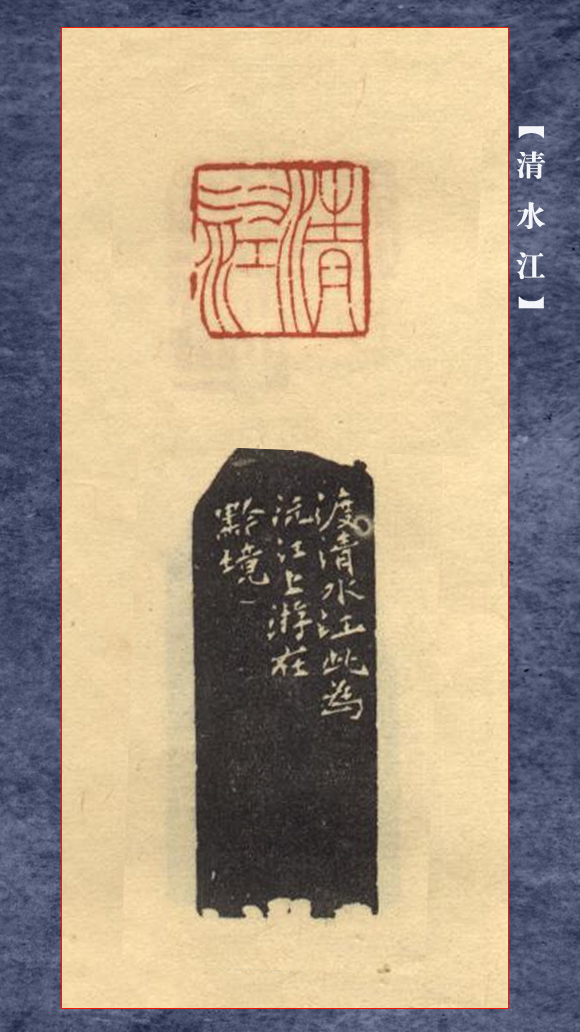 【清水江】
清水江
渡清水江此為
沅江上游在
黔境